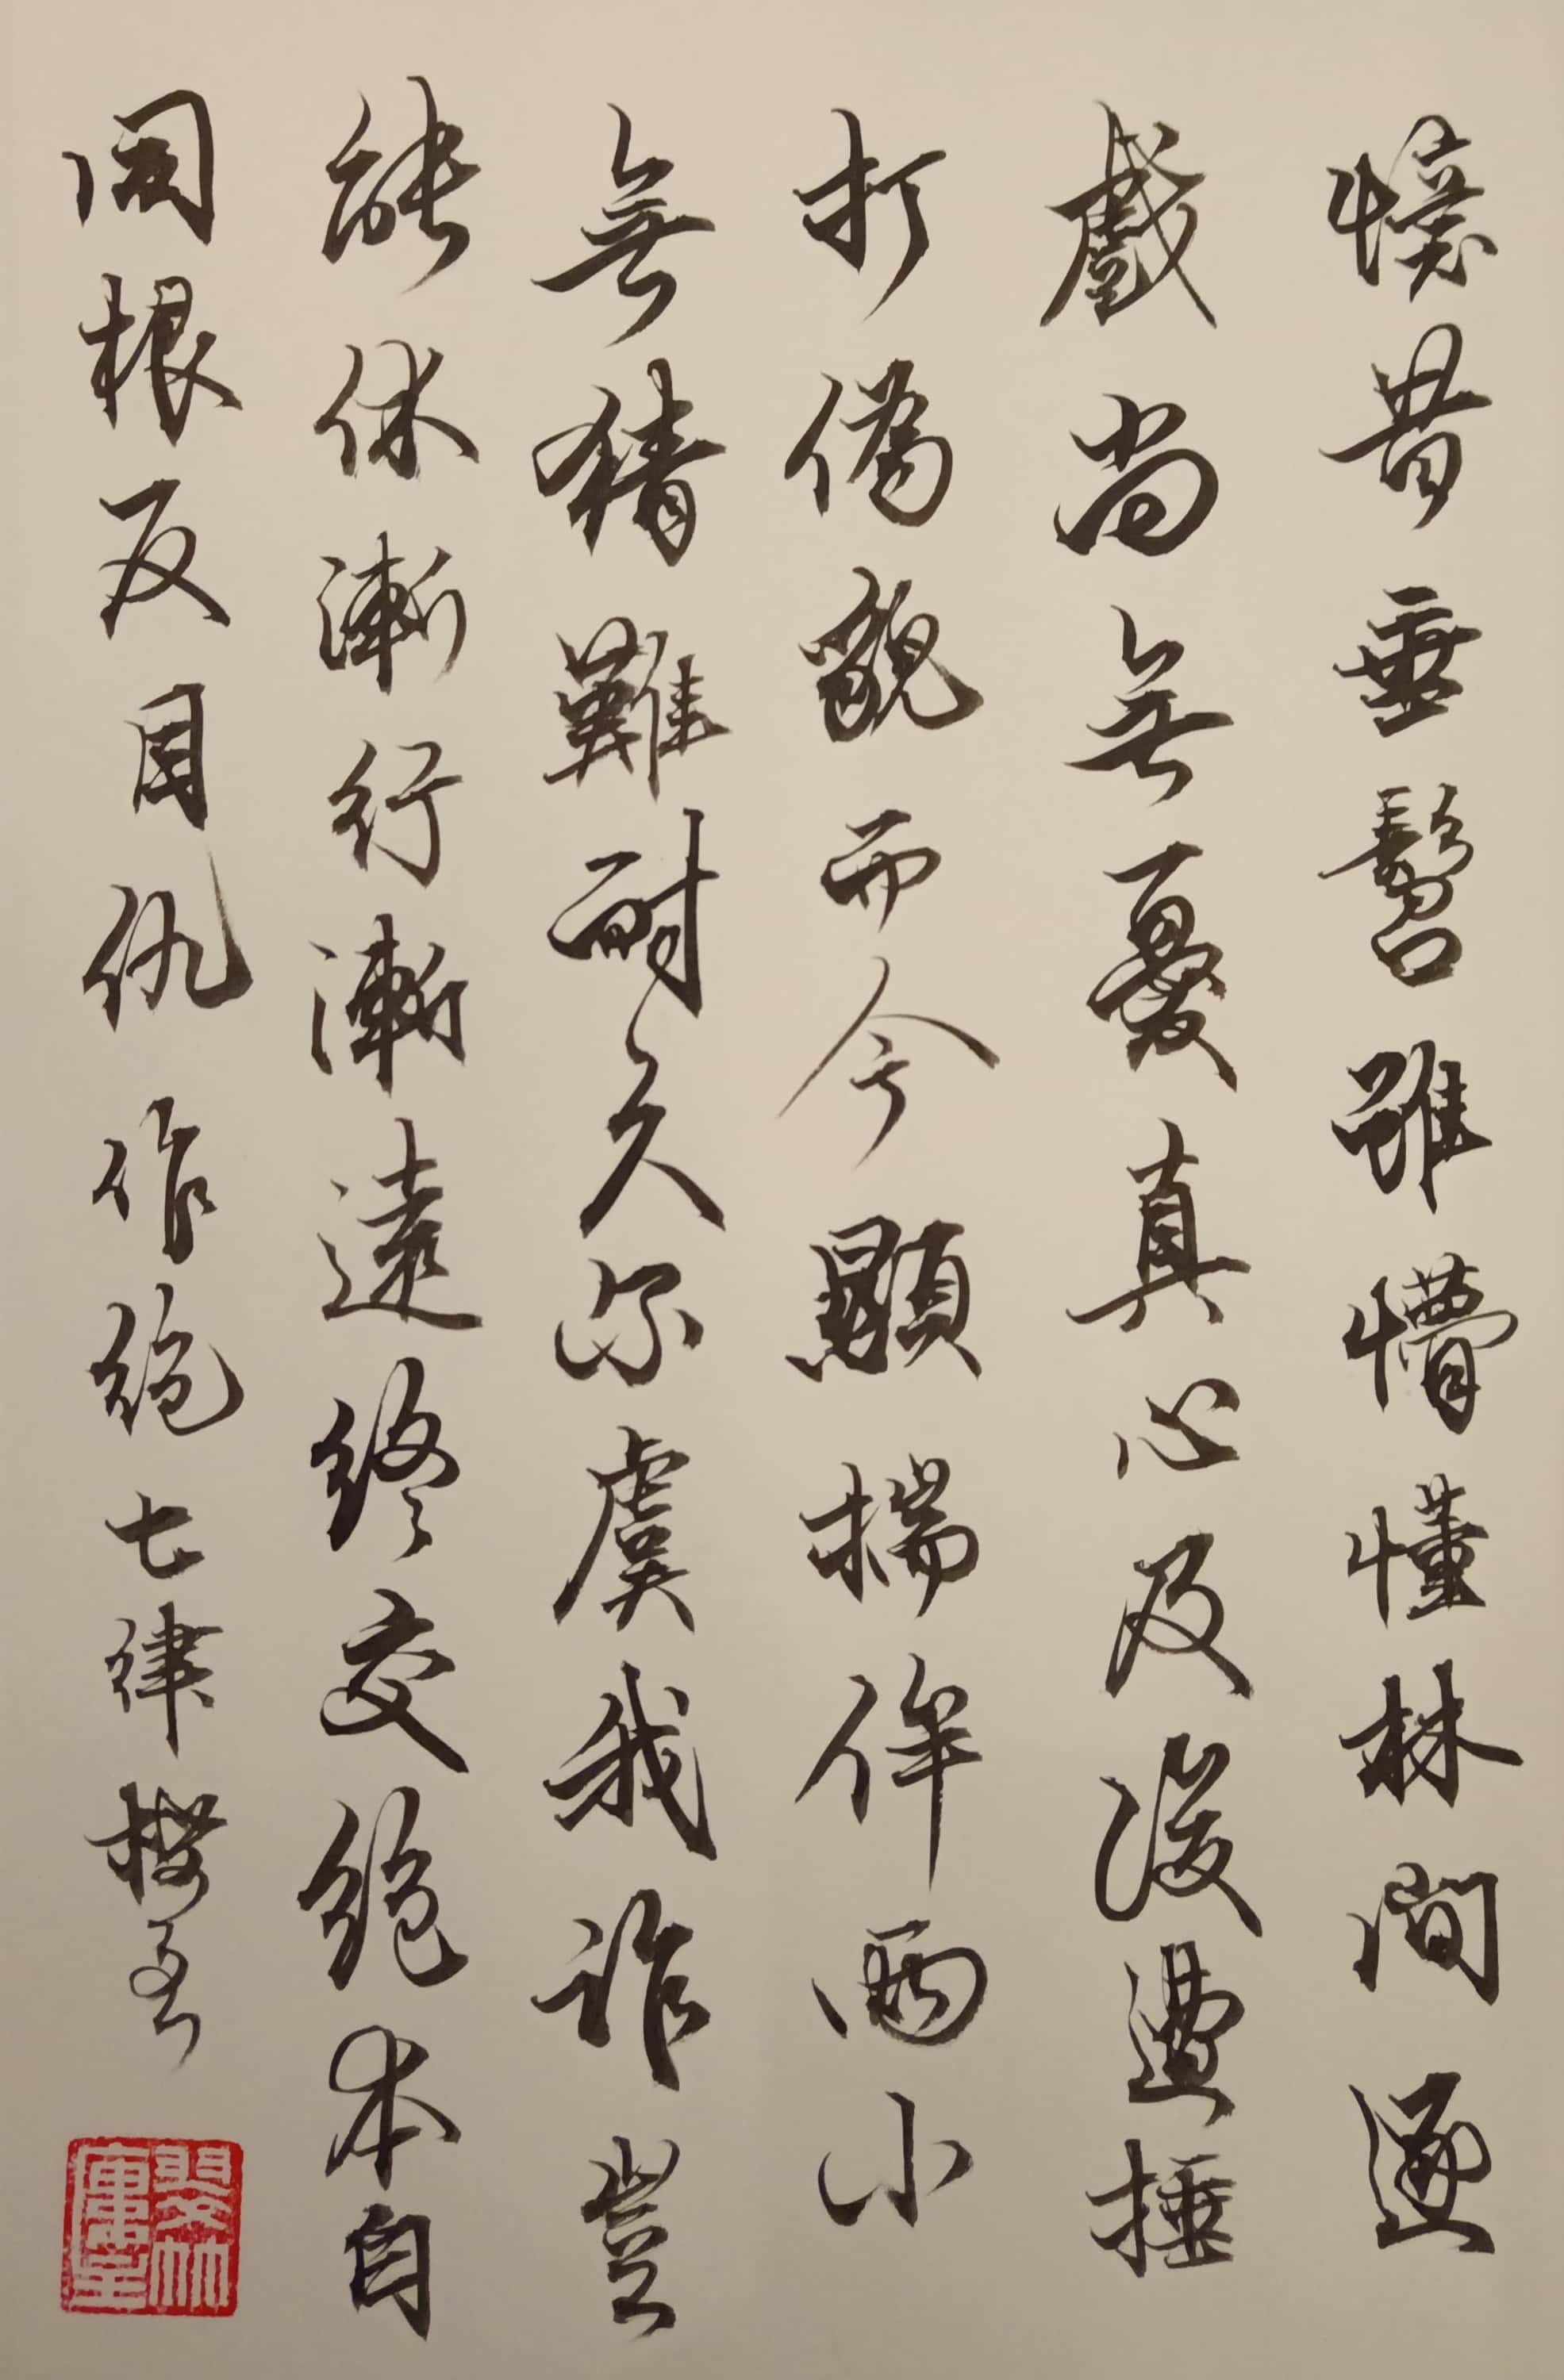 憶昔垂髫雖懵懂林間逐
戲尚無憂真心及後遭捶
打偽貌而今顯揣侔兩小
無猜難耐久尔虞我詐豈
能休漸行漸遠終交絕本自
同根反目仇作絕七律